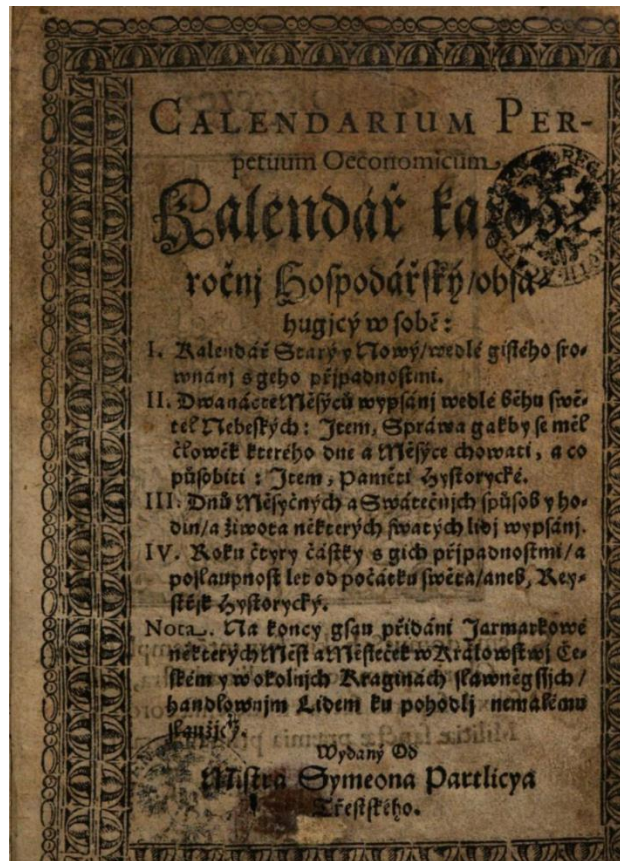 CALENDARIUM PER-
petuum Oeconomicum,
Kalendář každo-
ročnj Hospodářský/obsa-
hugjcý w sobě:
I. Kalendář Starý y Nowý/wedlé gistého srow-
wnánj s geho přjpadnostmi.
II. Dwanácte Měsýců wypsánj wedlé běhu swě-
tel Nebeských: Jtem, Spráwa gakby se měl
člowěk kterého dne a Měsýce chowati, a co
působiti: Jtem, Paměti Hystorycké.
III. Dnů Měsyčných a Swátečnjch spůsob y ho-
din/a žiwota některých swatých lidj wypsánj.
IV. Roku čtyry částky s gich přjpadnostmi/a
poslaupnost let od počátku swěta/aneb, Rey-
střjk Hystorycký.
Nota. Na koncy gsau přidáni Jarmarkowé
některých Měst a Městeček w Králowstwj Če-
ském y w okolnjch Kraginách slawněgssjch/
handlownjm Lidem ku pohodlj nemalému
slaužjcý.
Wydaný Od
Mistra Symeona Partlicya
Třestského.